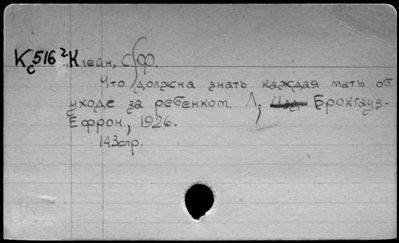 Кс516² Клейн, С.Ф.
Что должна знать каждая мать об
уходе за ребенком. Л, Изд. Брокгауз-
Ефрон, 1926.
143стр.